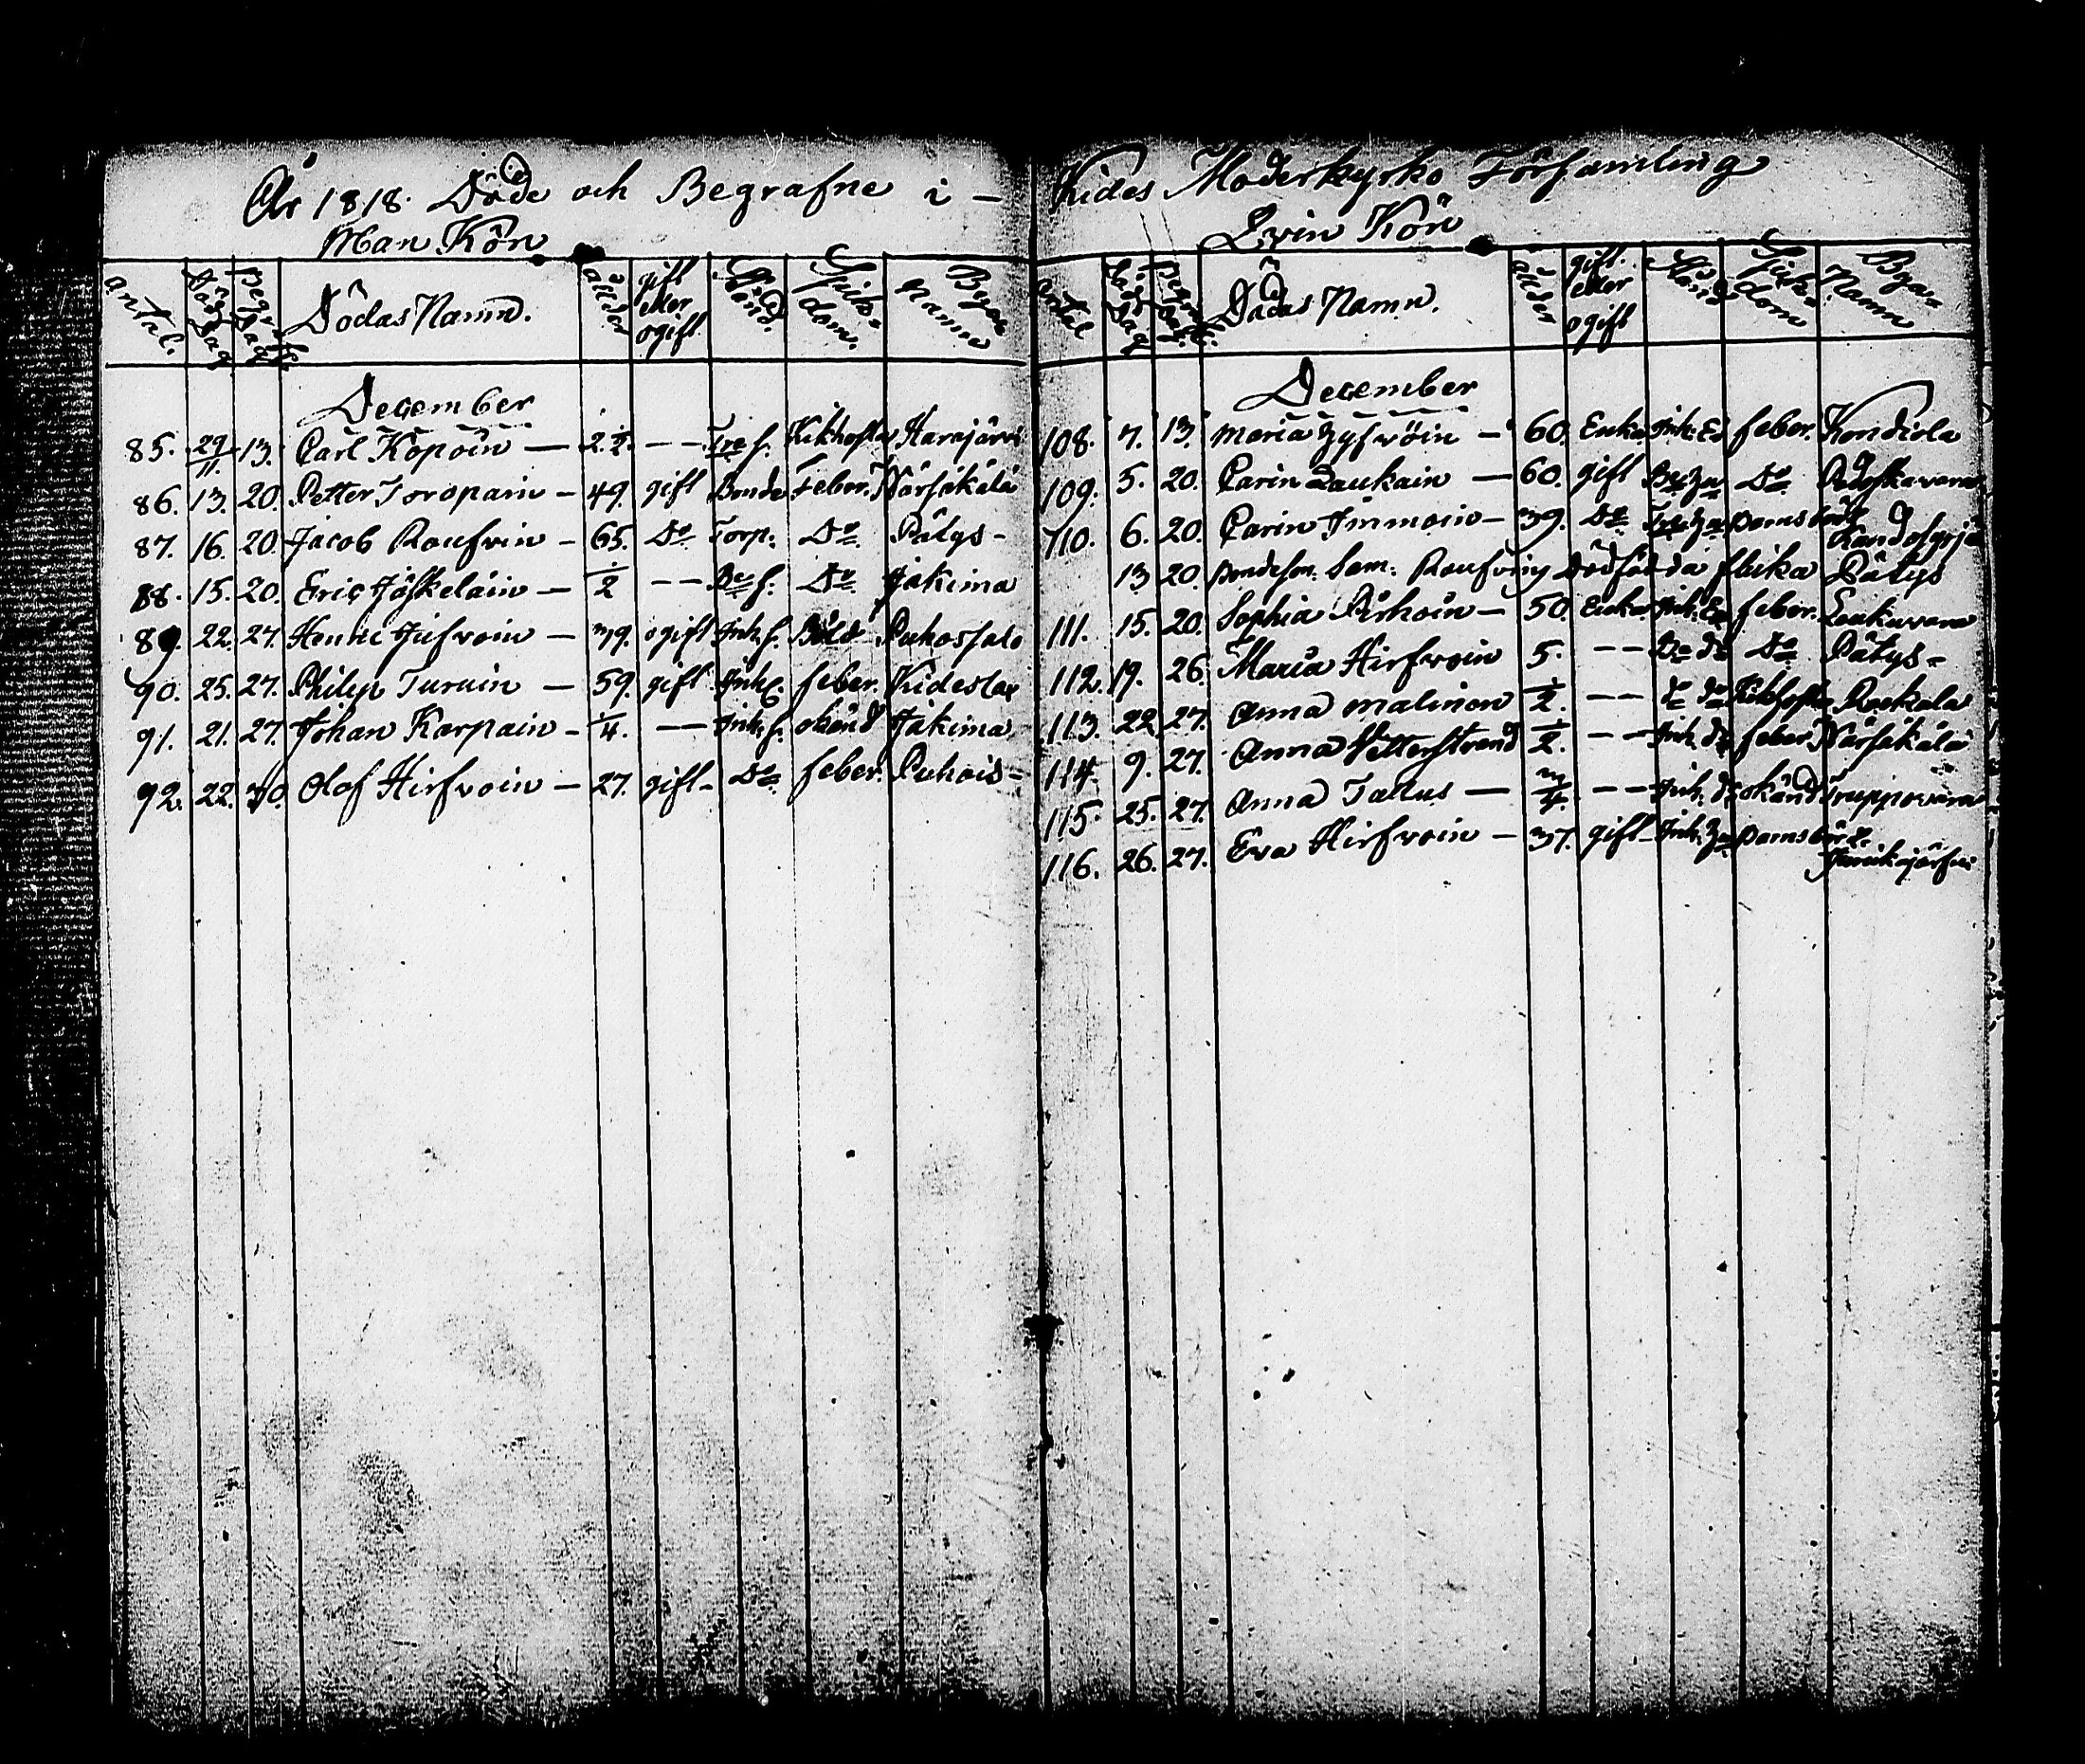 År 1818. Döde och Begrafne i – Kides Moderkyrko Församling
Man Kön
antal. Död Dag Begr. Dag Dödas Namn. ålder gift eller ogift Stånd Sjuk- dom. Byens Namn
December
85. 29/11. 13. Carl Kopoin — 2½. — — Tor. s. Kikhosta Harajärvi
86. 13. 20. Petter Toropain – 49. gift Bonde Feber. Närsäkälä
87. 16. 20. Jacob Roufvin – 65. Do Torp. Do Pätys –
88. 15. 20. Eric Jäskeläin — ½ — — Be s. Do Jakima
89. 22. 27. Henric Hifvoin — 39. ogift Inh. s. Puhossalo
90. 25. 27. Philip Turuin — 59. gift Inh. feber. Kideslax
91. 21. 27. Johan Karpain – ¼. — Inh. s. okänd Jakima
92. 22. 30. Olof Hirfvoin — 27. gift – Do feber. Puhois –
Qvin Kön
antal Död Dag Begr. Dag. Dödas Namn. ålder gift eller ogift Stånd Sjuk- dom Byens Namn
December
108. 7. 13. Maria — 60. Enka Inh. Ea feber. Kondiola
109. 5. 20. Carin Laukain — 60. gift Do
110. 6. 20. Carin Immoin – 39. Do Barnsbörd
13 20. Bondeson. Sam. Roufvins Dödfödda flicka Pätys
111. 15. 20. Sophia Pirhoin — 50. Enka Inh. Ea feber. Loukuvara
112. 19. 26. Maria Hirfvoin 5. — — Do do Do Pätys –
113. 22. 27. Anna Malinen ½. — — do Kikhosta Rockala
114. 9. 27. Anna Vetterstrand ½. — — Inh. do feber. Närsäkälä
115. 25. 27. Anna Tallus — ¾. — — Inh. do okänd Truppovara
116. 26. 27. Eva Hirfvoin — 37. gift – Inh. Barnsbörd.